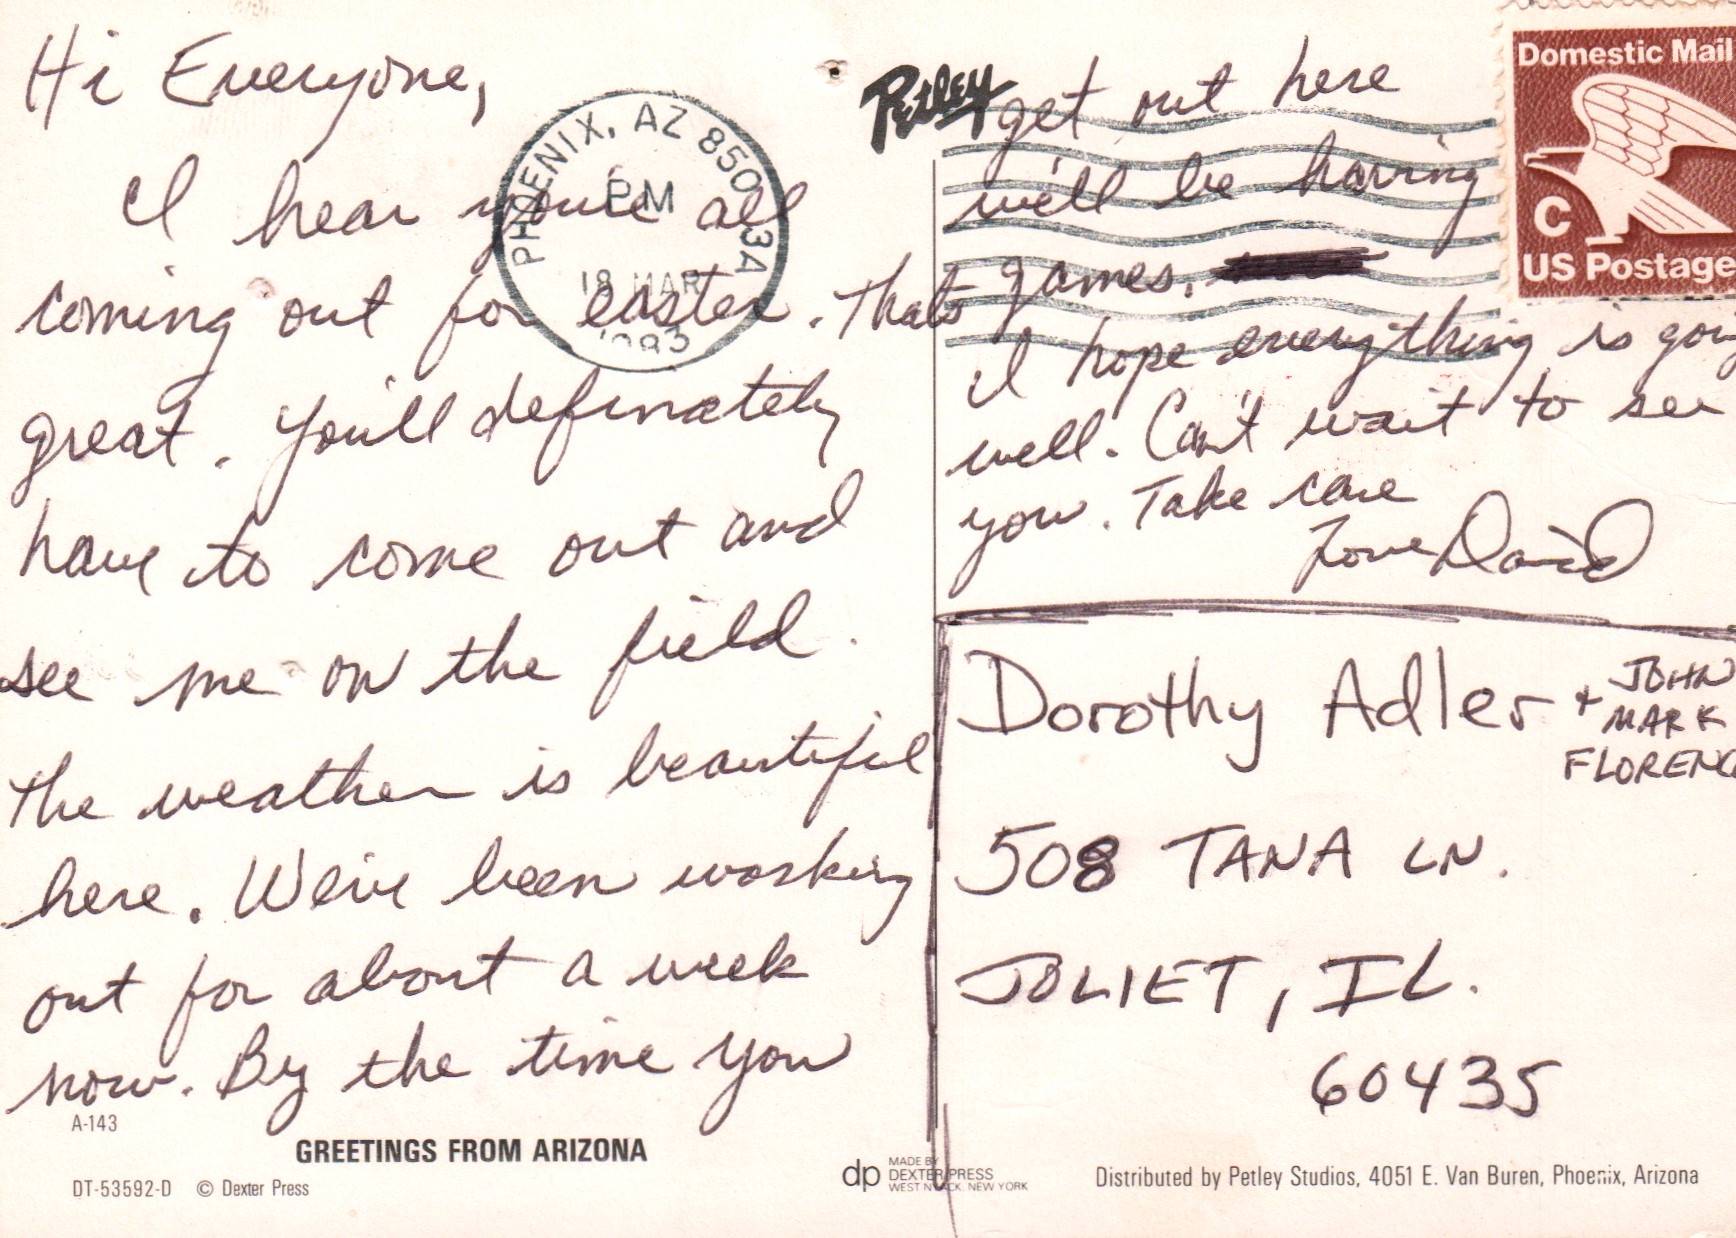 Hi Everyone,
I hear you're all
coming out for easter. Thats
great. You'll definately
have to come out and
see me on the field.
The weather is beautiful
here. We've been working
out for about a week
now. By the time you
A-143
GREETINGS FROM ARIZONA
DT-53592-D © Dexter Press
PHOENIX, AZ 850 3A
PM
18 MAR
Petley
get out here
we'll be having
games.
I hope everything is goin
well. Can't wait to see
you. Take care
Love David
Domestic Mail
C
US Postage
Dorothy Adler + JOHN
MARK
FLORENC
508 TANA LN.
JOLIET, IL.
60435
dp MADE BY
DEXTER PRESS
WEST NYACK, NEW YORK
Distributed by Petley Studios, 4051 E. Van Buren, Phoenix, Arizona